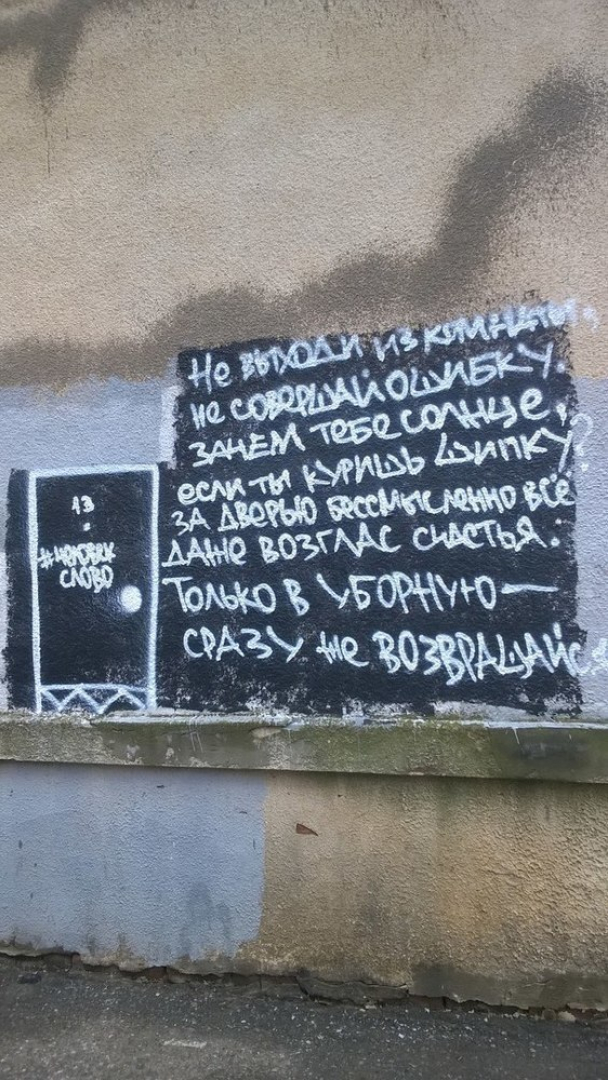 13
#человек
слово
Не выходи из комнаты,
не совершай ошибку.
зачем тебе солнце,
если ты куришь Шипку?
за дверью бессмысленно всё
даже возглас счастья.
Только в уборную —
сразу же возвращайся